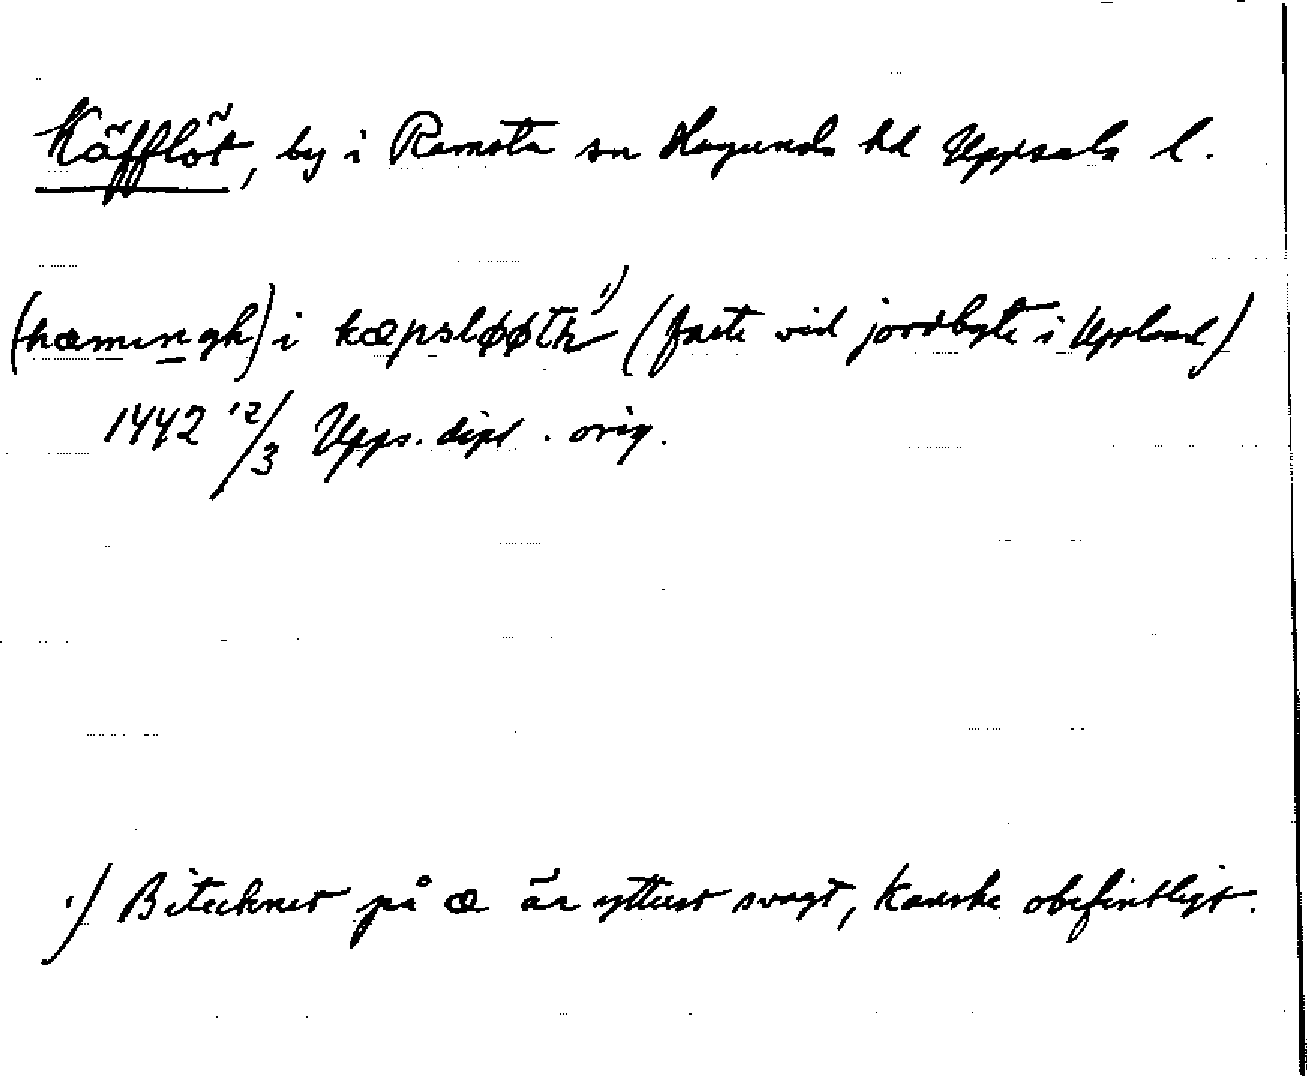 Käfflöt, by i Ramsta sn Hagunda hd Uppsala l.
(hæmingh) i kæpsløøth 1) (faste vid jordbyte i Uppland)
1442 12/3 Upps. dipl. orig.
1) Bitecknet på æ är ytterst svagt, kanske obefintligt.